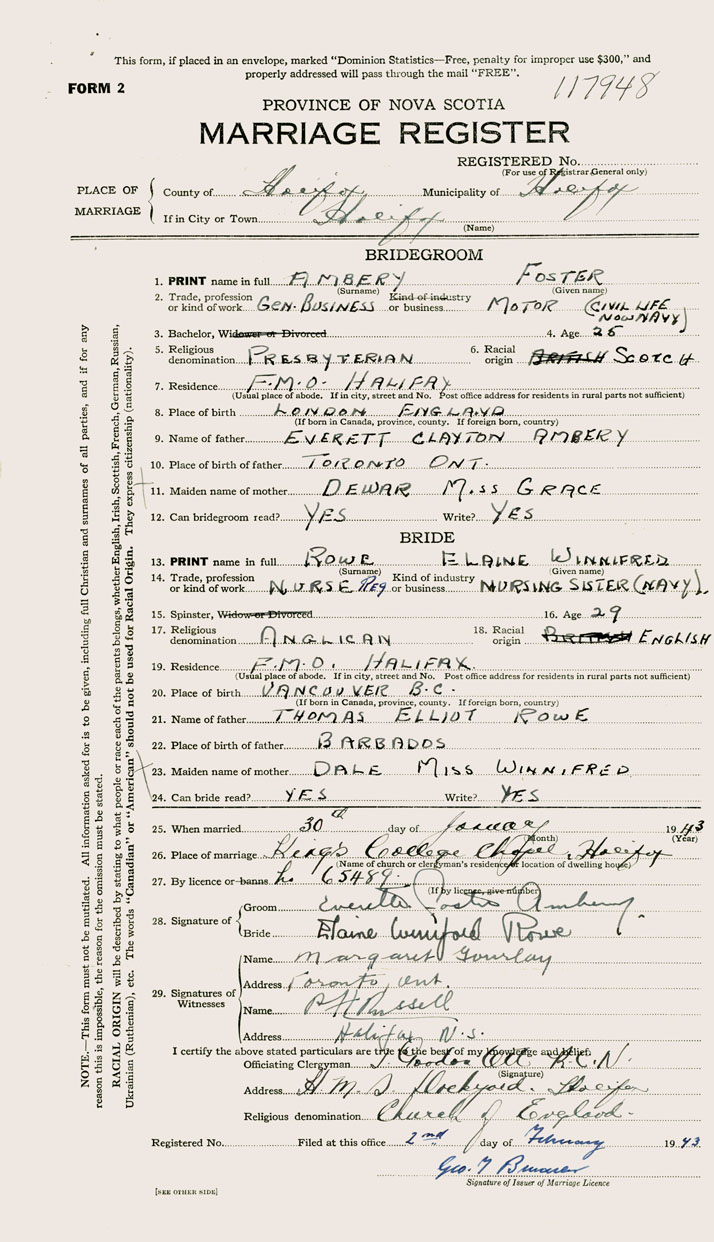 This form, if placed in an envelope, marked "Dominion Statistics—Free, penalty for improper use $300," and
properly addressed will pass through the mail "FREE".
FORM 2
117948
PROVINCE OF NOVA SCOTIA
MARRIAGE REGISTER
REGISTERED No.
(For use of Registrar General only)
PLACE OF MARRIAGE
County of Halifax Municipality of Halifax
If in City or Town Halifax
(Name)
BRIDEGROOM
1. PRINT name in full AMBERY FOSTER
(Surname) (Given name)
2. Trade, profession or kind of work GEN. BUSINESS Kind of industry or business MOTOR (CIVIL LIFE NOW NAVY)
3. Bachelor, Widower or Divorced 4. Age 25
5. Religious denomination PRESBYTERIAN 6. Racial origin BRITISH SCOTCH
7. Residence F.M.O. HALIFAX
(Usual place of abode. If in city, street and No. Post office address for residents in rural parts not sufficient)
8. Place of birth LONDON ENGLAND
(If born in Canada, province, county. If foreign born, country)
9. Name of father EVERETT CLAYTON AMBERY
10. Place of birth of father TORONTO ONT.
11. Maiden name of mother DEWAR MISS GRACE
12. Can bridegroom read? YES Write? YES
BRIDE
13. PRINT name in full ROWE ELAINE WINNIFRED
(Surname) (Given name)
14. Trade, profession or kind of work NURSE Reg Kind of industry or business NURSING SISTER (NAVY).
15. Spinster, Widow or Divorced 16. Age 29
17. Religious denomination ANGLICAN 18. Racial origin BRITISH ENGLISH
19. Residence F.M.O. HALIFAX.
(Usual place of abode. If in city, street and No. Post office address for residents in rural parts not sufficient)
20. Place of birth VANCOUVER B.C.
(If born in Canada, province, county. If foreign born, country)
21. Name of father THOMAS ELLIOT ROWE
22. Place of birth of father BARBADOS
23. Maiden name of mother DALE MISS WINNIFRED
24. Can bride read? YES Write? YES
25. When married 30th day of January 1943
(Month) (Year)
26. Place of marriage King's College Chapel, Halifax
(Name of church or clergyman's residence or location of dwelling house)
27. By licence or banns 65489.
(If by licence, give number)
28. Signature of
Groom Everett Foster Ambery
Bride Elaine Winnifred Rowe
29. Signatures of Witnesses
Name Margaret Gourlay
Address Toronto, Ont.
Name Russell
Address Halifax N.S.
I certify the above stated particulars are true to the best of my knowledge and belief.
Officiating Clergyman Gordon R.C.N.
(Signature)
Address H.M.S. Dockyard. Halifax
Religious denomination Church of England.
Registered No. Filed at this office 2nd day of February 1943
Geo. T
Signature of Issuer of Marriage Licence
[SEE OTHER SIDE]
NOTE.—This form must not be mutilated. All information asked for is to be given, including full Christian and surnames of all parties, and if for any
reason this is impossible, the reason for the omission must be stated.
RACIAL ORIGIN will be described by stating to what people or race each of the parents belongs, whether English, Irish, Scottish, French, German, Russian,
Ukrainian (Ruthenian), etc. The words "Canadian" or "American" should not be used for Racial Origin. They express citizenship (nationality).